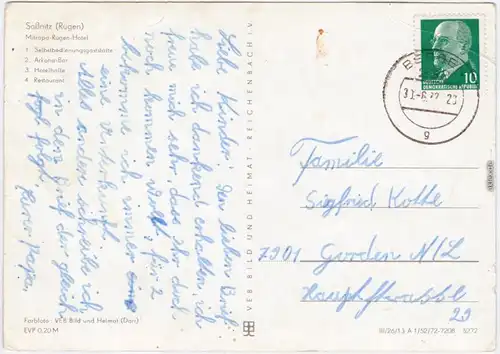 Saßnitz (Rügen)
Mitropa-Rügen-Hotel
1 Selbstbedienungsgaststätte
2 Arkona-Bar
3 Hotelhalle
4 Restaurant
Liebe Kinder! Den lieben Brief
habe ich dankend erhalten, ich
freue mich sehr, dass Ihr doch
noch kommen wollt, für 2
bekomme ich immer
eine Unterkunft.
Alles andere schreibe ich
in dem Brief der gleich
folgt, Euer Papa.
VEB BILD UND HEIMAT REICHENBACH I. V.
DEUTSCHE
DEMOKRATISCHE REPUBLIK
10
BERGEN
9
Familie
Siegfried Kotte
7901 Gorden N/L
Hauptstrasse
29
Farbfoto: VEB Bild und Heimat (Darr)
EVP 0,20 M
III/26/13 A 1/52/72-7208 5072